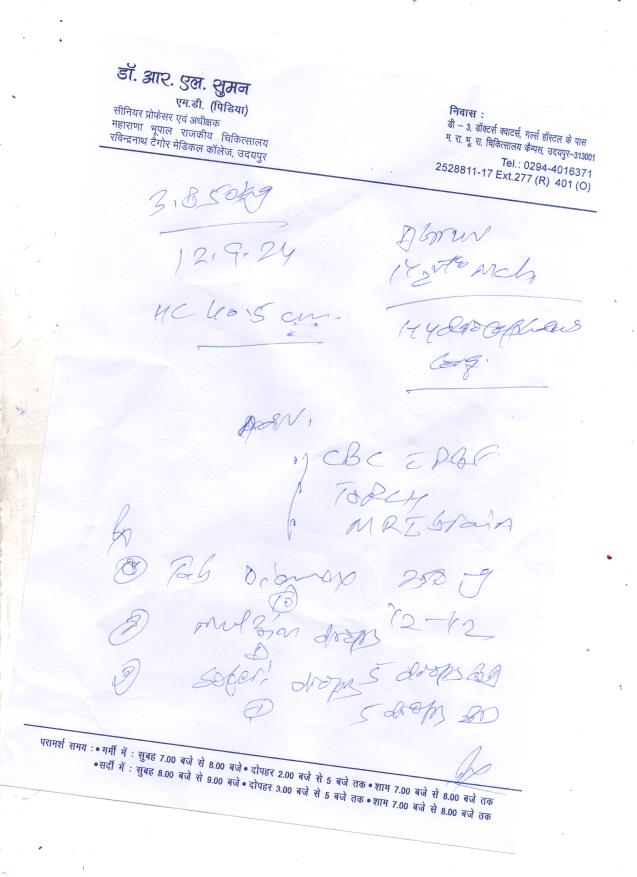 डॉ. आर. एल. सुमन
एम.डी. (पिडिया)
सीनियर प्रोफेसर एवं अधीक्षक
महाराणा भूपाल राजकीय चिकित्सालय
रविन्द्रनाथ टैगोर मेडिकल कॉलेज, उदयपुर
निवास :
डी – 3, डॉक्टर्स क्वाटर्स, गर्ल्स हॉस्टल के पास
म. रा. भू. रा. चिकित्सालय कैम्पस, उदयपुर–313001
Tel.: 0294-4016371
2528811-17 Ext.277 (R) 401 (O)
3.850kg
12.9.24
HC 40.5 cm.
Hydrocephalus
CBC
TORCH
MRI brain
Rx
Tab Diamox 250
drops
drops 5 drops
5 drops
परामर्श समय : • गर्मी में : सुबह 7.00 बजे से 8.00 बजे • दोपहर 2.00 बजे से 5 बजे तक • शाम 7.00 बजे से 8.00 बजे तक
• सर्दी में : सुबह 8.00 बजे से 9.00 बजे • दोपहर 3.00 बजे से 5 बजे तक • शाम 7.00 बजे से 8.00 बजे तक